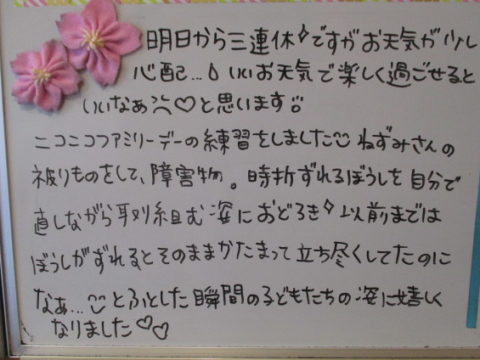 明日から三連休♪ですがお天気が少し
心配...💧いいお天気で楽しく過ごせると
いいなぁ♡と思います
ニコニコファミリーデーの練習をしました ねずみさんの
被りものをして、障害物。時折ずれるぼうしを自分で
直しながら取り組む姿におどろき! 以前までは
ぼうしがずれるとそのままかたまって立ち尽くしてたのに
なぁ...とふとした瞬間の子どもたちの姿に嬉しく
なりました♡♡